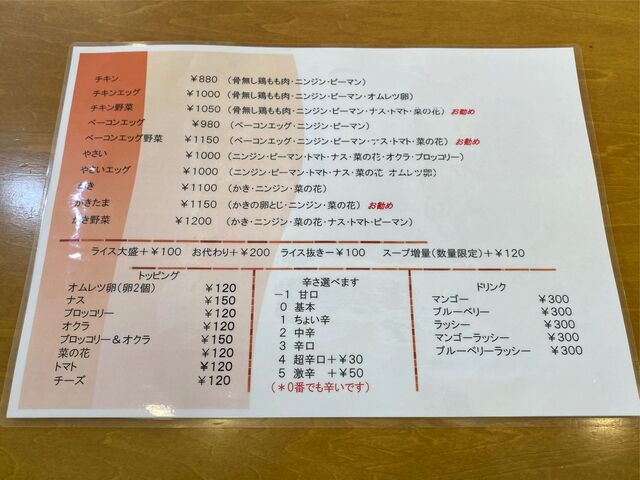 チキン ￥880 (骨無し鶏もも肉・ニンジン・ピーマン)
チキンエッグ ￥1000 (骨無し鶏もも肉・ニンジン・ピーマン・オムレツ卵)
チキン野菜 ￥1050 (骨無し鶏もも肉・ニンジン・ピーマン・ナス・トマト・菜の花) お勧め
ベーコンエッグ ￥980 (ベーコンエッグ・ニンジン・ピーマン)
ベーコンエッグ野菜 ￥1150 (ベーコンエッグ・ニンジン・ピーマン・ナス・トマト・菜の花) お勧め
やさい ￥1000 (ニンジン・ピーマン・トマト・ナス・菜の花・オクラ・ブロッコリー)
やさいエッグ ￥1000 (ニンジン・ピーマン・トマト・ナス・菜の花 オムレツ卵)
かき ￥1100 (かき・ニンジン・菜の花)
かきたま ￥1150 (かきの卵とじ・ニンジン・菜の花) お勧め
かき野菜 ￥1200 (かき・ニンジン・菜の花・ナス・トマト・ピーマン)
ライス大盛＋￥100 お代わり＋￥200 ライス抜きー￥100 スープ増量(数量限定)＋￥120
トッピング
オムレツ卵(卵2個) ￥120
ナス ￥150
ブロッコリー ￥120
オクラ ￥120
ブロッコリー＆オクラ ￥150
菜の花 ￥120
トマト ￥120
チーズ ￥120
辛さ選べます
－1 甘口
0 基本
1 ちょい辛
2 中辛
3 辛口
4 超辛口＋￥30
5 激辛 ＋￥50
(＊0番でも辛いです)
ドリンク
マンゴー ￥300
ブルーベリー ￥300
ラッシー ￥300
マンゴーラッシー ￥300
ブルーベリーラッシー ￥300